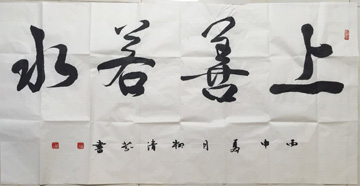 上善若水
丙申夏月柳清花書